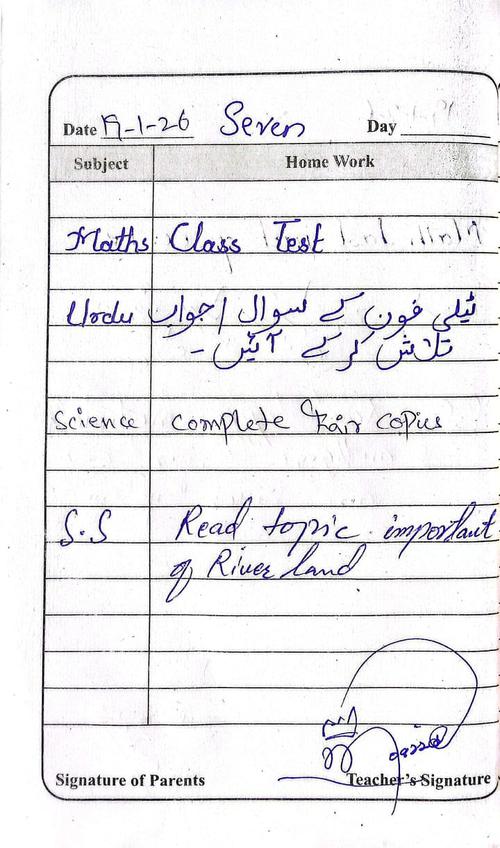 Date 19-1-26 Seven Day
Subject Home Work
Maths Class Test
Urdu ٹیلی فون کے سوال / جواب
تلاش کر کے آئیں -
Science complete Fair copies
S.S Read topic important
of River land
Signature of Parents Teacher's Signature